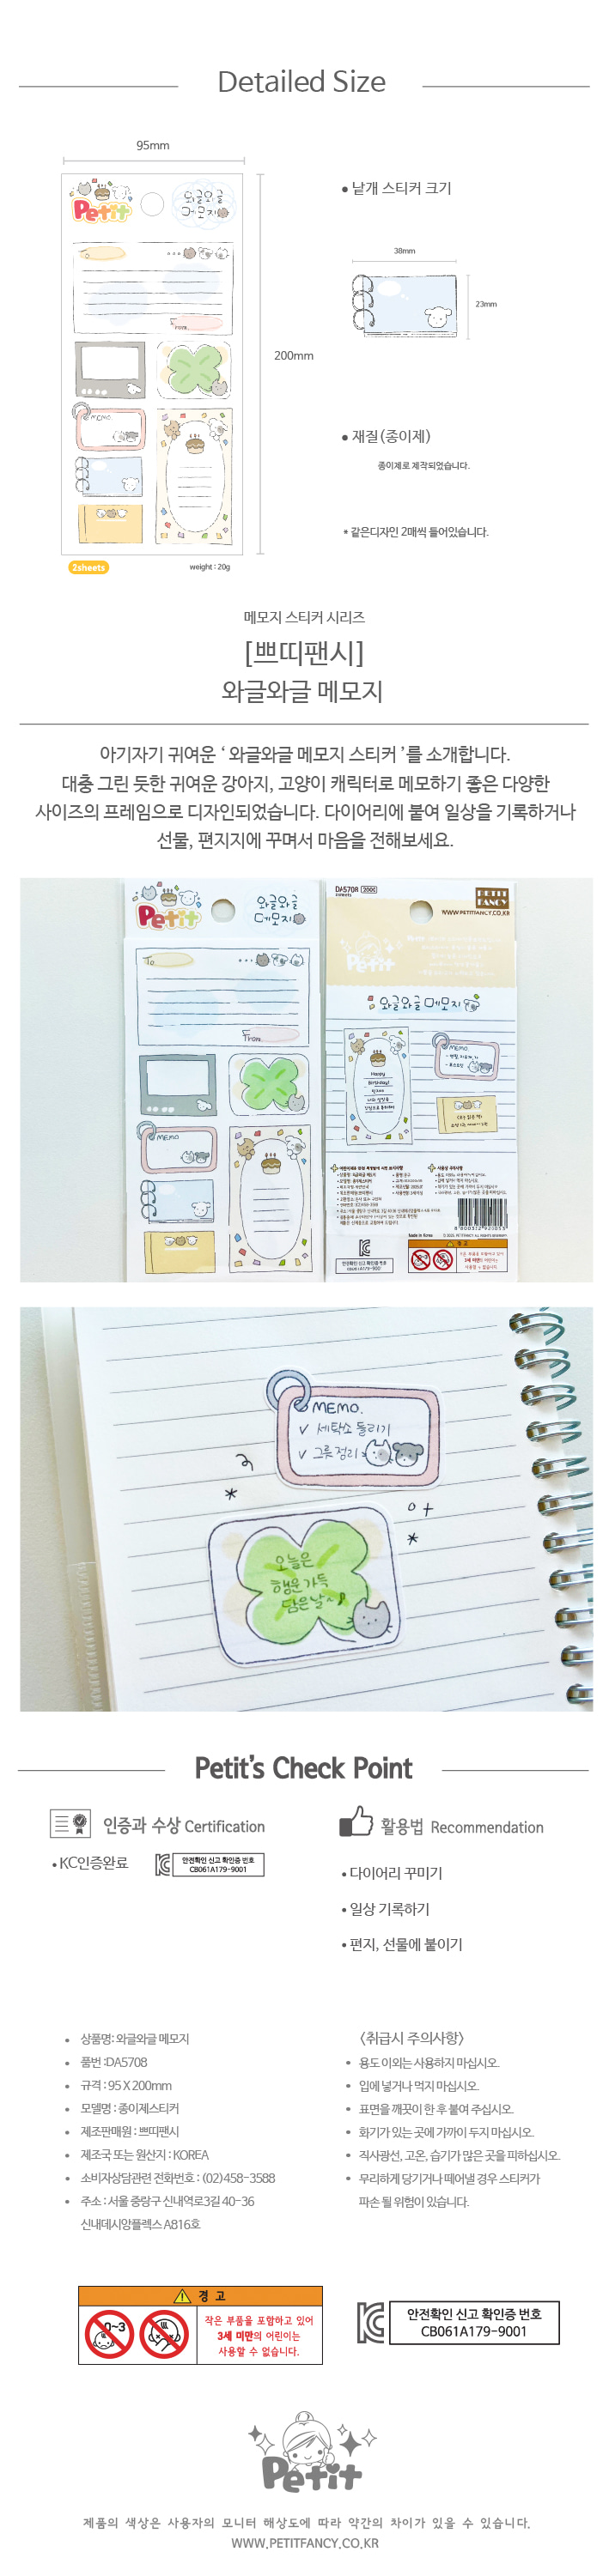 Detailed Size
95mm
Petit
와글와글
메모지
From.
MEMO.
200mm
2sheets
weight : 20g
• 낱개 스티커 크기
38mm
23mm
• 재질(종이제)
종이제로 제작되었습니다.
* 같은디자인 2매씩 들어있습니다.
메모지 스티커 시리즈
[쁘띠팬시]
와글와글 메모지
아기자기 귀여운 ‘ 와글와글 메모지 스티커 ’를 소개합니다.
대충 그린 듯한 귀여운 강아지, 고양이 캐릭터로 메모하기 좋은 다양한
사이즈의 프레임으로 디자인되었습니다. 다이어리에 붙여 일상을 기록하거나
선물, 편지지에 꾸며서 마음을 전해보세요.
Petit
와글와글
메모지
To.
From.
MEMO.
DA5708
2000
PETIT
FANCY
WWW.PETITFANCY.CO.KR
Petit
와글와글 메모지
Happy
Birthday!
MEMO.
Made in Korea
경 고
안전확인 신고 확인증 번호
CB061A179-9001
MEMO.
✓ 세탁소 들리기
✓ 그릇 정리
오늘은
행운 가득
담은 날
Petit's Check Point
인증과 수상 Certification
• KC인증완료
안전확인 신고 확인증 번호
CB061A179-9001
활용법 Recommendation
• 다이어리 꾸미기
• 일상 기록하기
• 편지, 선물에 붙이기
• 상품명: 와글와글 메모지
• 품번 :DA5708
• 규격 : 95 X 200mm
• 모델명 : 종이제스티커
• 제조판매원 : 쁘띠팬시
• 제조국 또는 원산지 : KOREA
• 소비자상담관련 전화번호 : (02)458-3588
• 주소 : 서울 중랑구 신내역로3길 40-36
신내데시앙플렉스 A816호
<취급시 주의사항>
• 용도 이외는 사용하지 마십시오.
• 입에 넣거나 먹지 마십시오.
• 표면을 깨끗이 한 후 붙여 주십시오.
• 화기가 있는 곳에 가까이 두지 마십시오.
• 직사광선, 고온, 습기가 많은 곳을 피하십시오.
• 무리하게 당기거나 떼어낼 경우 스티커가
파손 될 위험이 있습니다.
경 고
0~3
작은 부품을 포함하고 있어
3세 미만의 어린이는
사용할 수 없습니다.
안전확인 신고 확인증 번호
CB061A179-9001
Petit
제품의 색상은 사용자의 모니터 해상도에 따라 약간의 차이가 있을 수 있습니다.
WWW.PETITFANCY.CO.KR